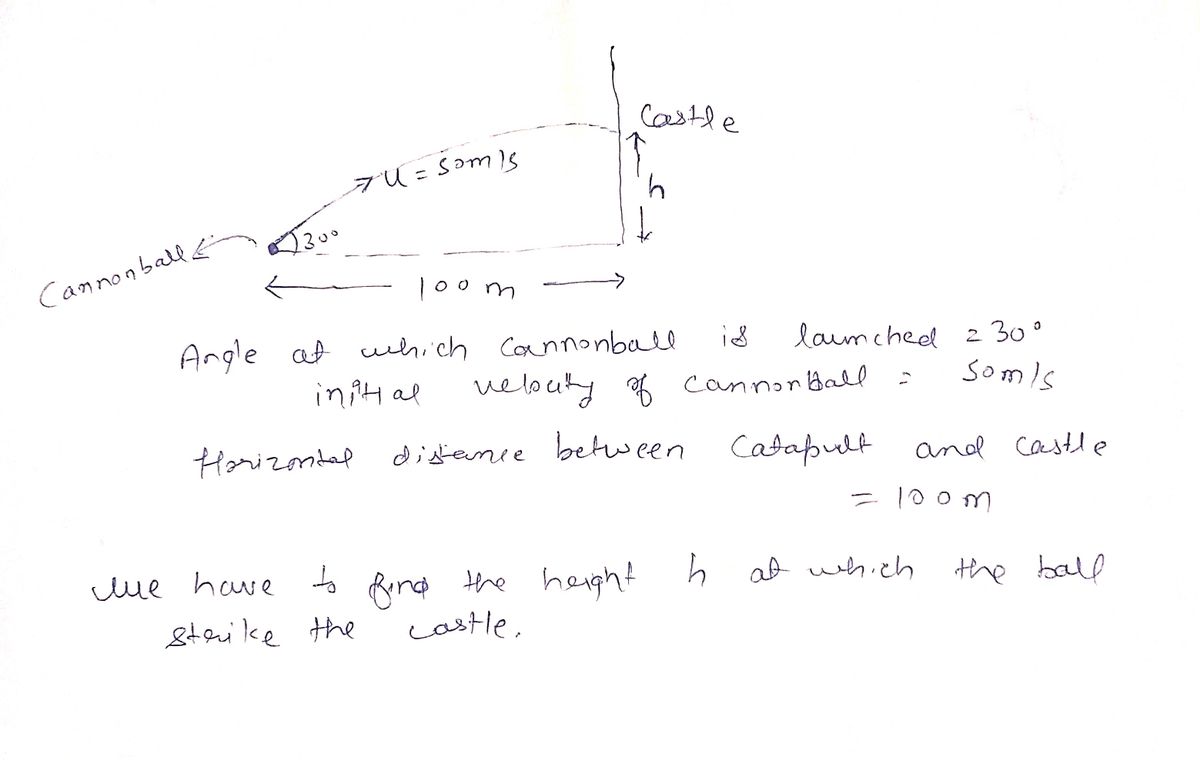 Castle
u = 50m/s
h
30°
Cannonball
100 m
Angle at which Cannonball is launched = 30°
initial velocity of cannonball = 50m/s
Horizontal distance between Catapult and castle
= 100m
We have to find the height h at which the ball
strike the castle.